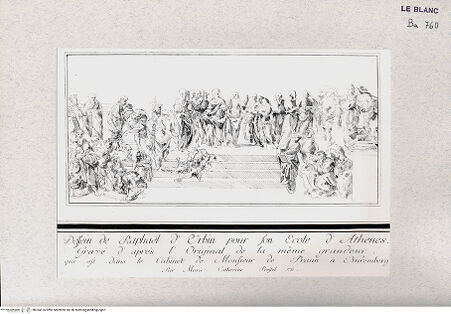 LE BLANC
Ba 760
Dessein de Raphael d'Urbin pour son Ecole d'Athenes.
Gravé d'après l'Original de la même grandeur
qui est dans le Cabinet de Monsieur de Praun à Nuremberg
Par Marie Catherine Prestel